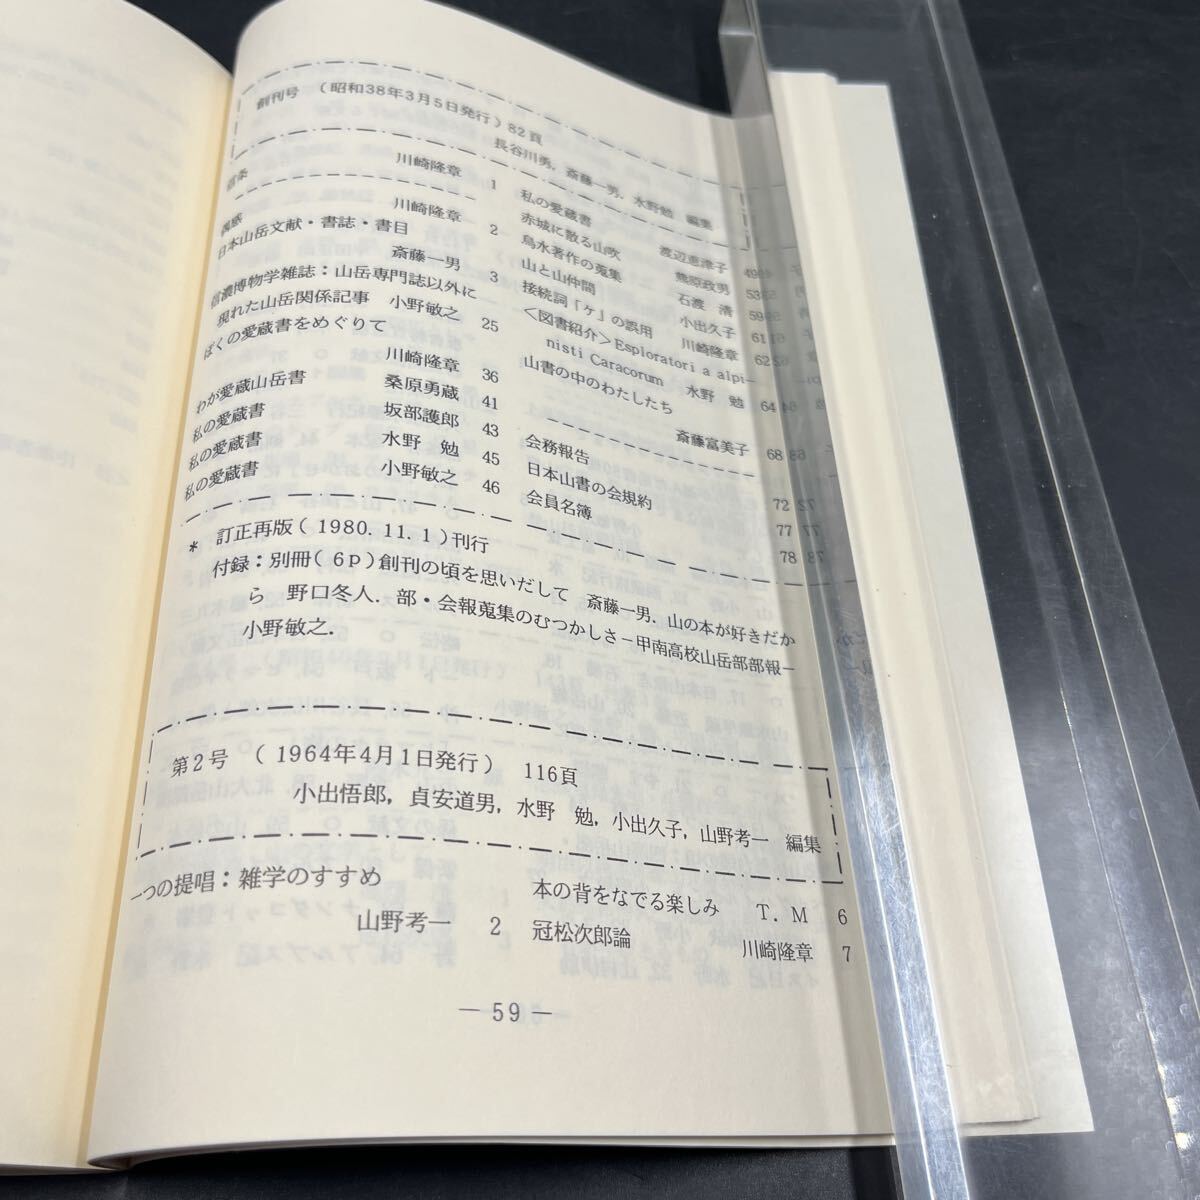 創刊号 (昭和38年3月5日発行) 82頁
長谷川勇, 斎藤一男, 水野勉 編集
信条 川崎隆章 1
偶感 川崎隆章 2
日本山岳文献・書誌・書目
斎藤一男 3
信濃博物学雑誌:山岳専門誌以外に
現れた山岳関係記事 小野敏之 25
ぼくの愛蔵書をめぐりて
川崎隆章 36
わが愛蔵山岳書 桑原勇蔵 41
私の愛蔵書 坂部護郎 43
私の愛蔵書 水野 勉 45
私の愛蔵書 小野敏之 46
私の愛蔵書 渡辺恵津子 49
赤城に散る山吹 熊原政男 53
烏水著作の蒐集 石渡 清 59
山と山仲間 小出久子 61
接続詞「ヶ」の誤用 川崎隆章 62
<図書紹介>Esploratori a alpi-
nisti Caracorum 水野 勉 64
山書の中のわたしたち
斎藤富美子 68
会務報告 72
日本山書の会規約 77
会員名簿 78
* 訂正再版(1980.11.1)刊行
付録:別冊(6p)創刊の頃を思いだして 斎藤一男. 山の本が好きだか
ら 野口冬人. 部・会報蒐集のむつかしさ-甲南高校山岳部部報-
小野敏之.
第2号 (1964年4月1日発行) 116頁
小出悟郎, 貞安道男, 水野 勉, 小出久子, 山野考一 編集
一つの提唱:雑学のすすめ
山野考一 2
本の背をなでる楽しみ T.M 6
冠松次郎論 川崎隆章 7
— 59 —